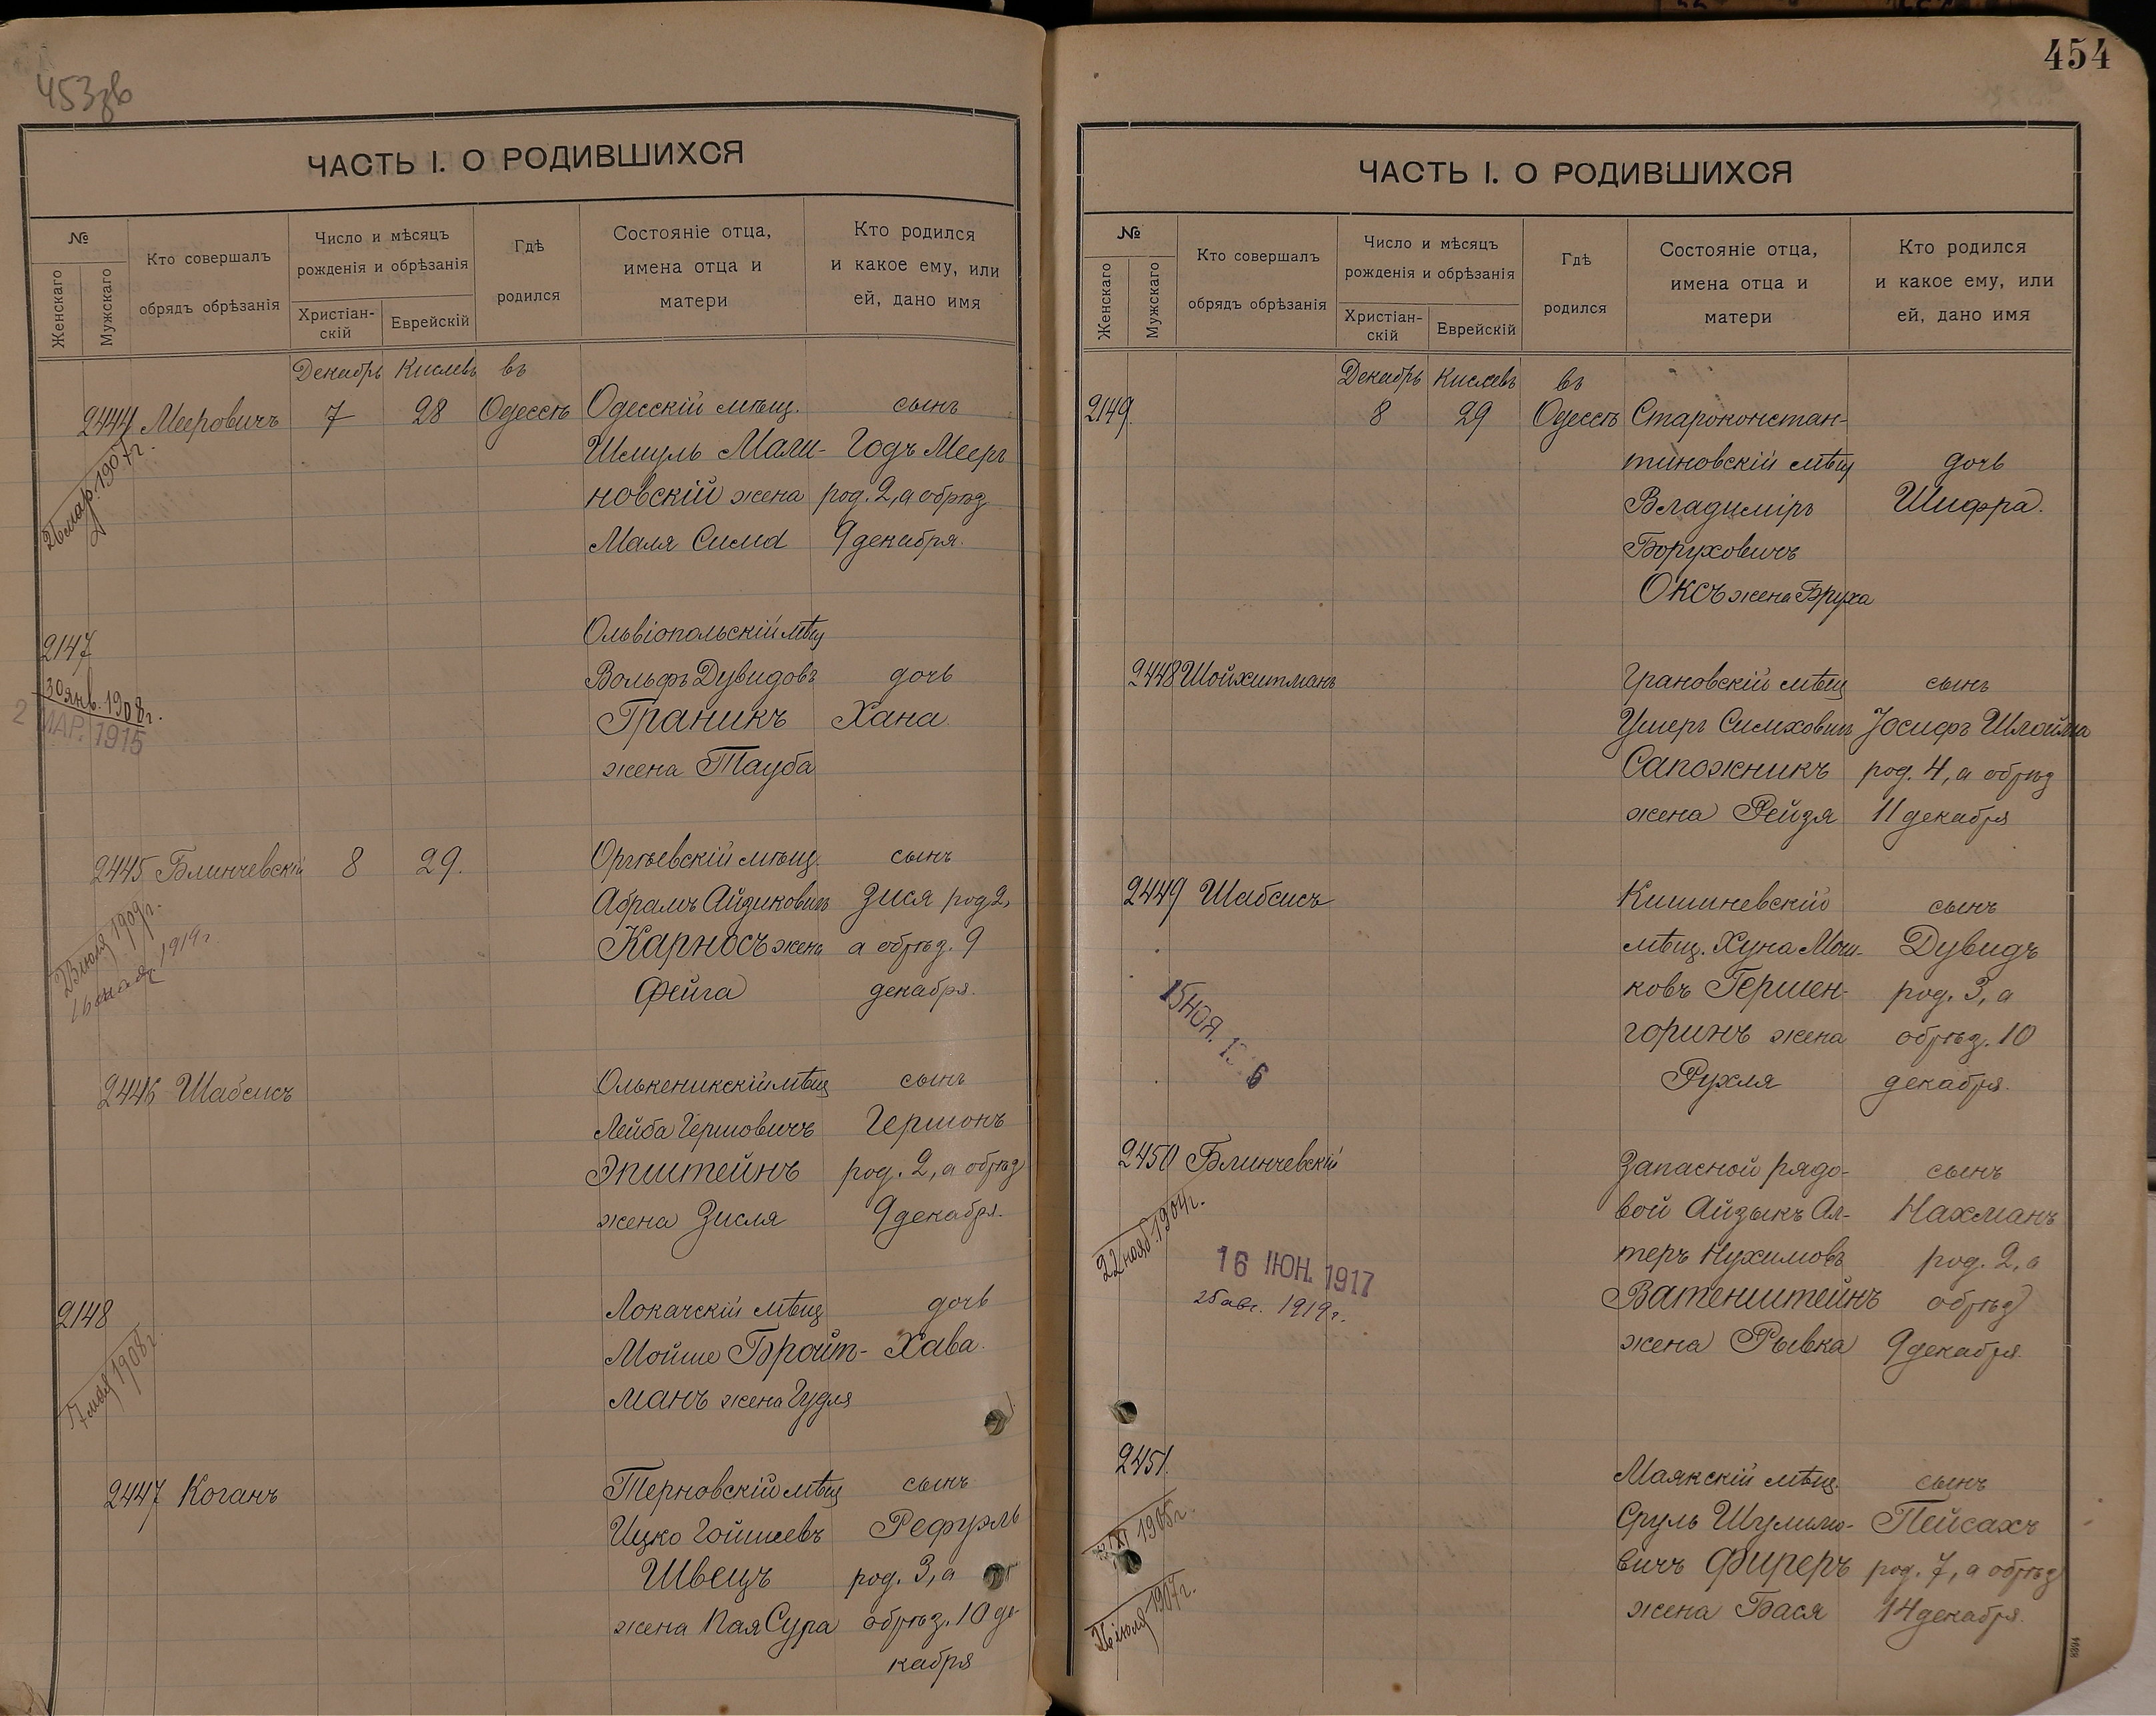 453зв
ЧАСТЬ I. О РОДИВШИХСЯ
№
Женскаго
Мужскаго
Кто совершалъ
обрядъ обрѣзанія
Число и мѣсяцъ
рожденія и обрѣзанія
Христіан-
скій
Еврейскій
Гдѣ
родился
Состояніе отца,
имена отца и
матери
Кто родился
и какое ему, или
ей, дано имя
Декабрь Кислевъ въ
2444 Мееровичъ 7 28 Одессѣ Одесскій мѣщ. сынъ
Шмуль Мали- Годъ Мееръ
новскій жена род. 2, а обрѣз
Маля Сима 9 декабря.
26 мар. 1907 г.
2147 Ольвіопольскій мѣщ
Вольфъ Дувидовъ дочь
Граникъ Хана
жена Тауба
30 янв. 1908 г.
2 МАР. 1915
2445 Блинчевскій 8 29. Оргѣевскій мѣщ. сынъ
Абрамъ Айзиковичъ Зися род 2,
Карносъ жена а обрѣз. 9
Фейга декабря.
1909 г.
1919 г
2446 Шабсисъ Олькеникскій мѣщ сынъ
Лейба Гершовичъ Гершонъ
Эпштейнъ род. 2, а обрѣз
жена Зисля 9 декабря.
2148 Локачскій мѣщ дочь
Мойше Бройт- Хава.
манъ жена Гудля
17 мая 1908 г.
2447 Коганъ Терновскій мѣщ сынъ
Ицко Гойшевъ Рефуэль
Швецъ род. 3, а
жена Пая Сура обрѣз. 10 де
кабря
454
ЧАСТЬ I. О РОДИВШИХСЯ
№
Женскаго
Мужскаго
Кто совершалъ
обрядъ обрѣзанія
Число и мѣсяцъ
рожденія и обрѣзанія
Христіан-
скій
Еврейскій
Гдѣ
родился
Состояніе отца,
имена отца и
матери
Кто родился
и какое ему, или
ей, дано имя
Декабрь Кислевъ въ
2149. 8 29 Одессѣ Староконстан-
тиновскій мѣщ дочь
Владиміръ Шифра.
Боруховичъ
Оксъ жена Бруха
2448 Шойхитманъ Грановскій мѣщ сынъ
Ушеръ Симховичъ Іосифъ Шлойма
Сапожникъ род. 4, а обрѣз
жена Рейзя 11 декабря
2449 Шабсисъ Кишиневскій сынъ
мѣщ. Хуна Мош- Дувидъ
ковъ Гершен- род. 3, а
горинъ жена обрѣз. 10
Рухля декабря.
15 НОЯ.
2450 Блинчевскій Запасной рядо- сынъ
вой Айзыкъ Ал- Нахманъ
теръ Нухимовъ род. 2, а
Ватенштейнъ обрѣз
жена Рывка 9 декабря.
22 нояб. 1904 г.
16 ІЮН. 1917
25 авг. 1919 г.
2451. Маякскій мѣщ. сынъ
Сруль Шулимо- Пейсахъ
вичъ Фиреръ род. 7, а обрѣз
жена Бася 14 декабря.
XI 1905 г.
26 іюля 1907 г.